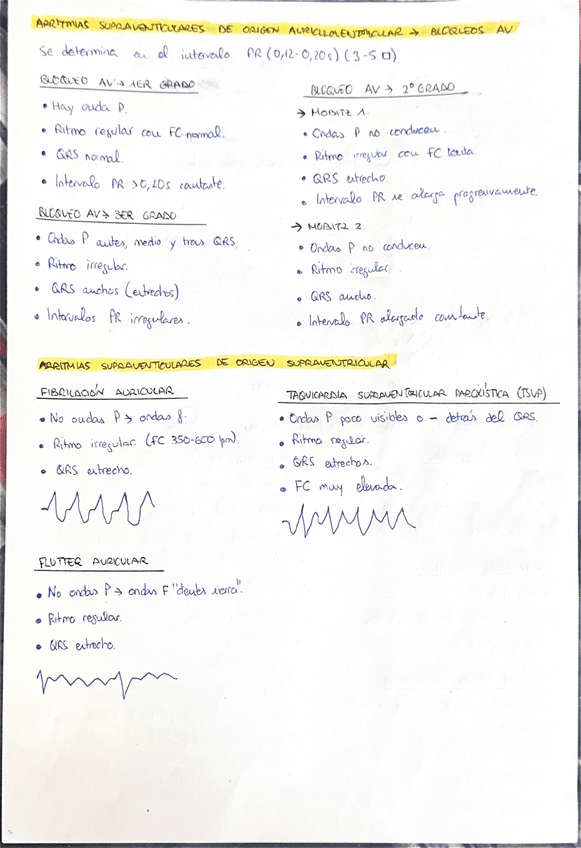 ARRITMIAS SUPRAVENTICULARES DE ORIGEN AURICULOVENTRICULAR → BLOQUEOS AV
Se determina en el intervalo PR (0,12-0,20s) (3-5 □)
BLOQUEO AV → 1ER GRADO
• Hay onda P.
• Ritmo regular con FC normal.
• QRS normal.
• Intervalo PR >0,20s constante.
BLOQUEO AV → 3ER GRADO
• Ondas P antes, medio y tras QRS.
• Ritmo irregular.
• QRS anchos (estrechos)
• Intervalos PR irregulares.
BLOQUEO AV → 2º GRADO
→ MOBITZ 1.
• Ondas P no conducen.
• Ritmo irregular con FC lenta.
• QRS estrecho.
• Intervalo PR se alarga progresivamente.
→ MOBITZ 2.
• Ondas P no conducen.
• Ritmo irregular.
• QRS ancho.
• Intervalo PR alargado constante.
ARRITMIAS SUPRAVENTICULARES DE ORIGEN SUPRAVENTRICULAR
FIBRILACIÓN AURICULAR
• No ondas P → ondas f.
• Ritmo irregular. (FC 350-600 lpm).
• QRS estrecho.
TAQUICARDIA SUPRAVENTRICULAR PAROXÍSTICA (TSVP)
• Ondas P poco visibles o - detrás del QRS.
• Ritmo regular.
• QRS estrechos.
• FC muy elevada.
FLUTTER AURICULAR
• No ondas P → ondas F "dientes sierra".
• Ritmo regular.
• QRS estrecho.